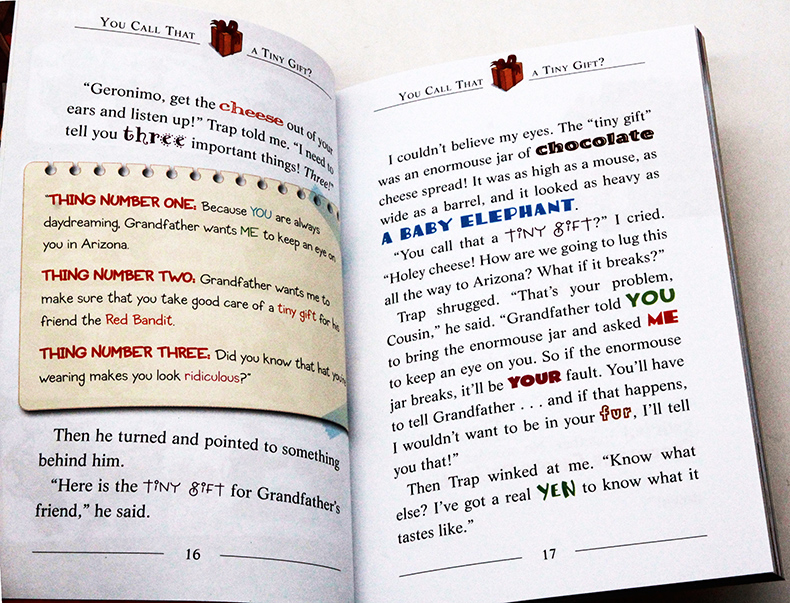 YOU CALL THAT A TINY GIFT?
“Geronimo, get the cheese out of your
ears and listen up!” Trap told me. “I need to
tell you three important things! Three!”
THING NUMBER ONE: Because YOU are always
daydreaming, Grandfather wants ME to keep an eye on
you in Arizona.
THING NUMBER TWO: Grandfather wants me to
make sure that you take good care of a tiny gift for his
friend the Red Bandit.
THING NUMBER THREE: Did you know that hat
wearing makes you look ridiculous?”
Then he turned and pointed to something
behind him.
“Here is the TINY GIFT for Grandfather’s
friend,” he said.
16
YOU CALL THAT A TINY GIFT?
I couldn’t believe my eyes. The “tiny gift”
was an enormous jar of chocolate
cheese spread! It was as high as a mouse, as
wide as a barrel, and it looked as heavy as
A BABY ELEPHANT.
“You call that a TINY GIFT?” I cried.
“Holey cheese! How are we going to lug this
all the way to Arizona? What if it breaks?”
Trap shrugged. “That’s your problem,
Cousin,” he said. “Grandfather told YOU
to bring the enormous jar and asked ME
to keep an eye on you. So if the enormous
jar breaks, it’ll be YOUR fault. You’ll have
to tell Grandfather . . . and if that happens,
I wouldn’t want to be in your fur, I’ll tell
you that!”
Then Trap winked at me. “Know what
else? I’ve got a real YEN to know what it
tastes like.”
17